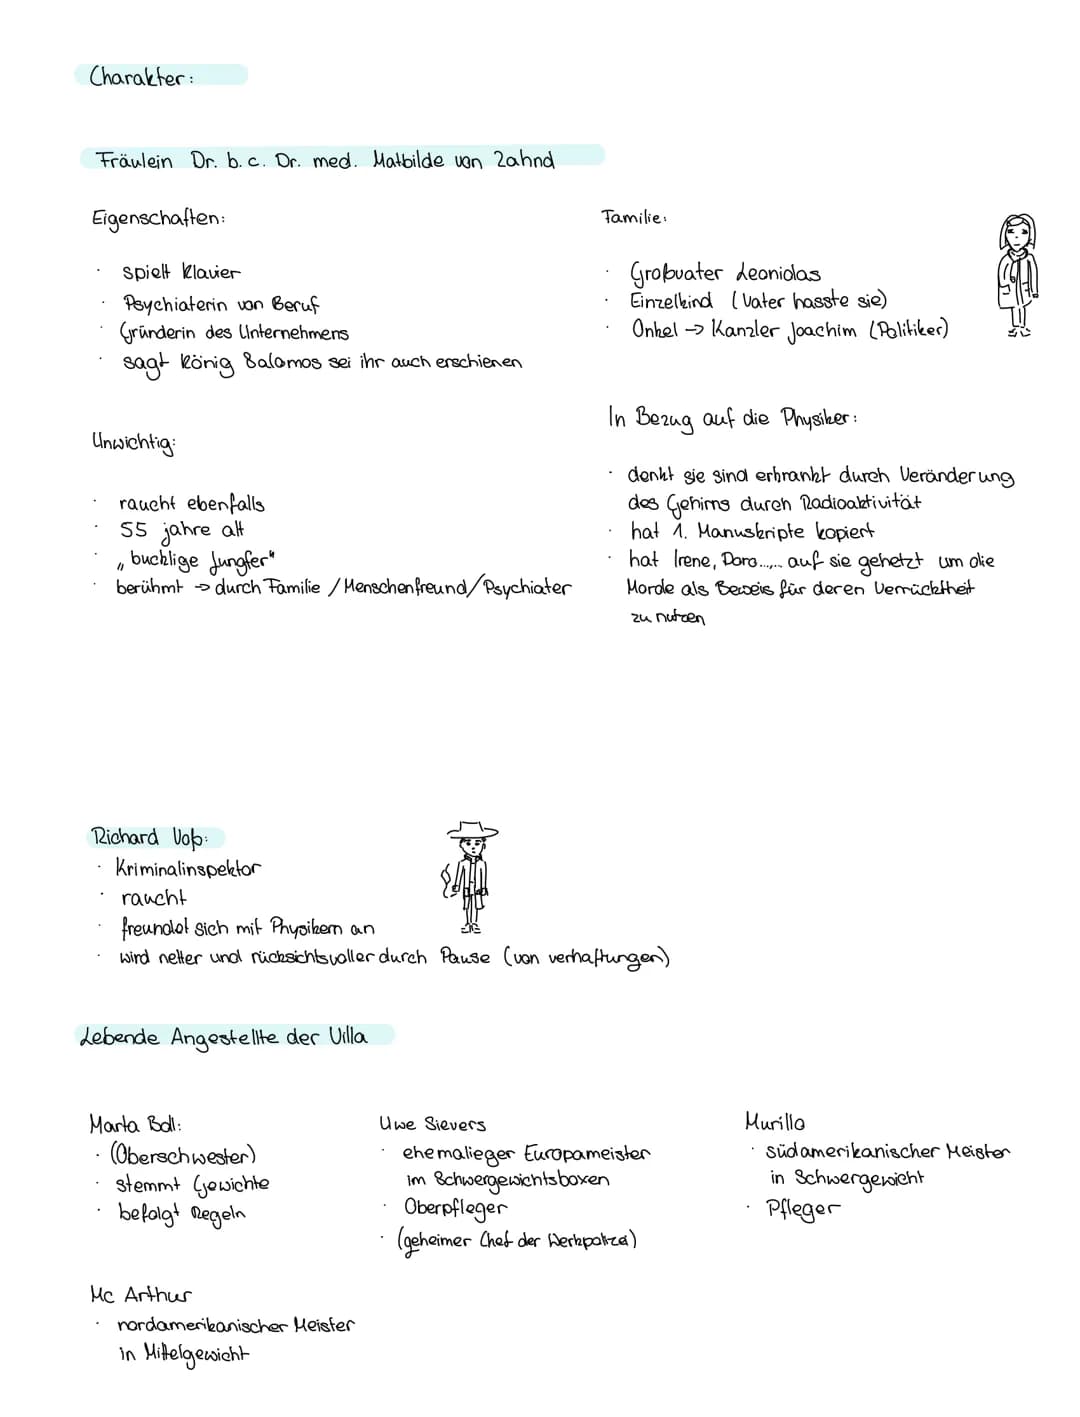 Charakter:
Fräulein Dr. h. c. Dr. med. Mathilde von Zahnd
Eigenschaften:
· spielt Klavier
· Psychiaterin von Beruf
· Gründerin des Unternehmens
· sagt König Salomos sei ihr auch erschienen
Unwichtig:
· raucht ebenfalls
· 55 jahre alt
· „bucklige Jungfer"
· berühmt → durch Familie / Menschenfreund/Psychiater
Familie:
· Großvater Leonidas
· Einzelkind (Vater hasste sie)
· Onkel → Kanzler Joachim (Politiker)
In Bezug auf die Physiker:
· denkt sie sind erkrankt durch Veränderung
des Gehirns durch Radioaktivität
· hat 1. Manuskripte kopiert
· hat Irene, Doro...,... auf sie gehetzt um die
Morde als Beweis für deren Verrücktheit
zu nutzen
Richard Voß:
· Kriminalinspektor
· raucht
· freundet sich mit Physikern an
· wird netter und rücksichtsvoller durch Pause (von verhaftungen)
Lebende Angestellte der Villa
Marta Boll:
· (Oberschwester)
· stemmt Gewichte
· befolgt Regeln
Uwe Sievers
· ehemalieger Europameister
im Schwergewichtsboxen
· Oberpfleger
· (geheimer Chef der Werkpolizei)
Murillo
· südamerikanischer Meister
in Schwergewicht
· Pfleger
Mc Arthur
· nordamerikanischer Meister
in Mittelgewicht